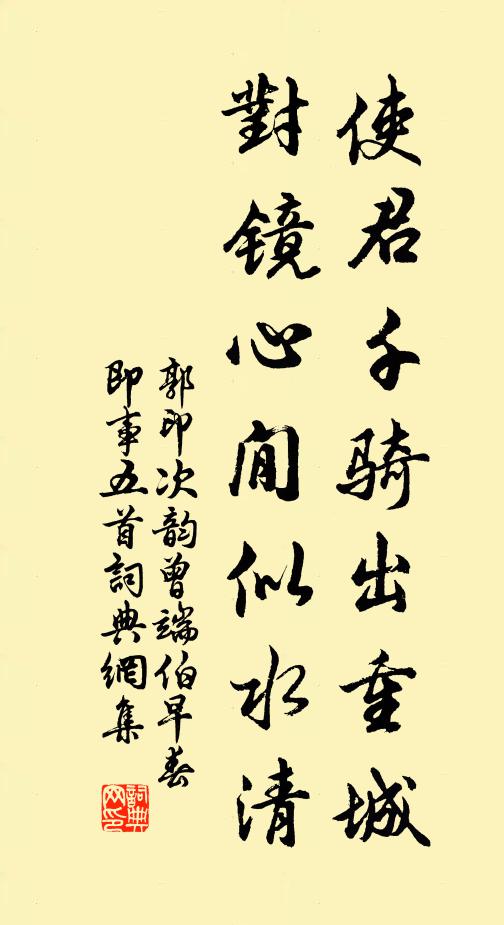 使君千骑出重城
對镜心閒似水清
郭印次韵曾端伯早春
即事五首詞典網集
詞典网印